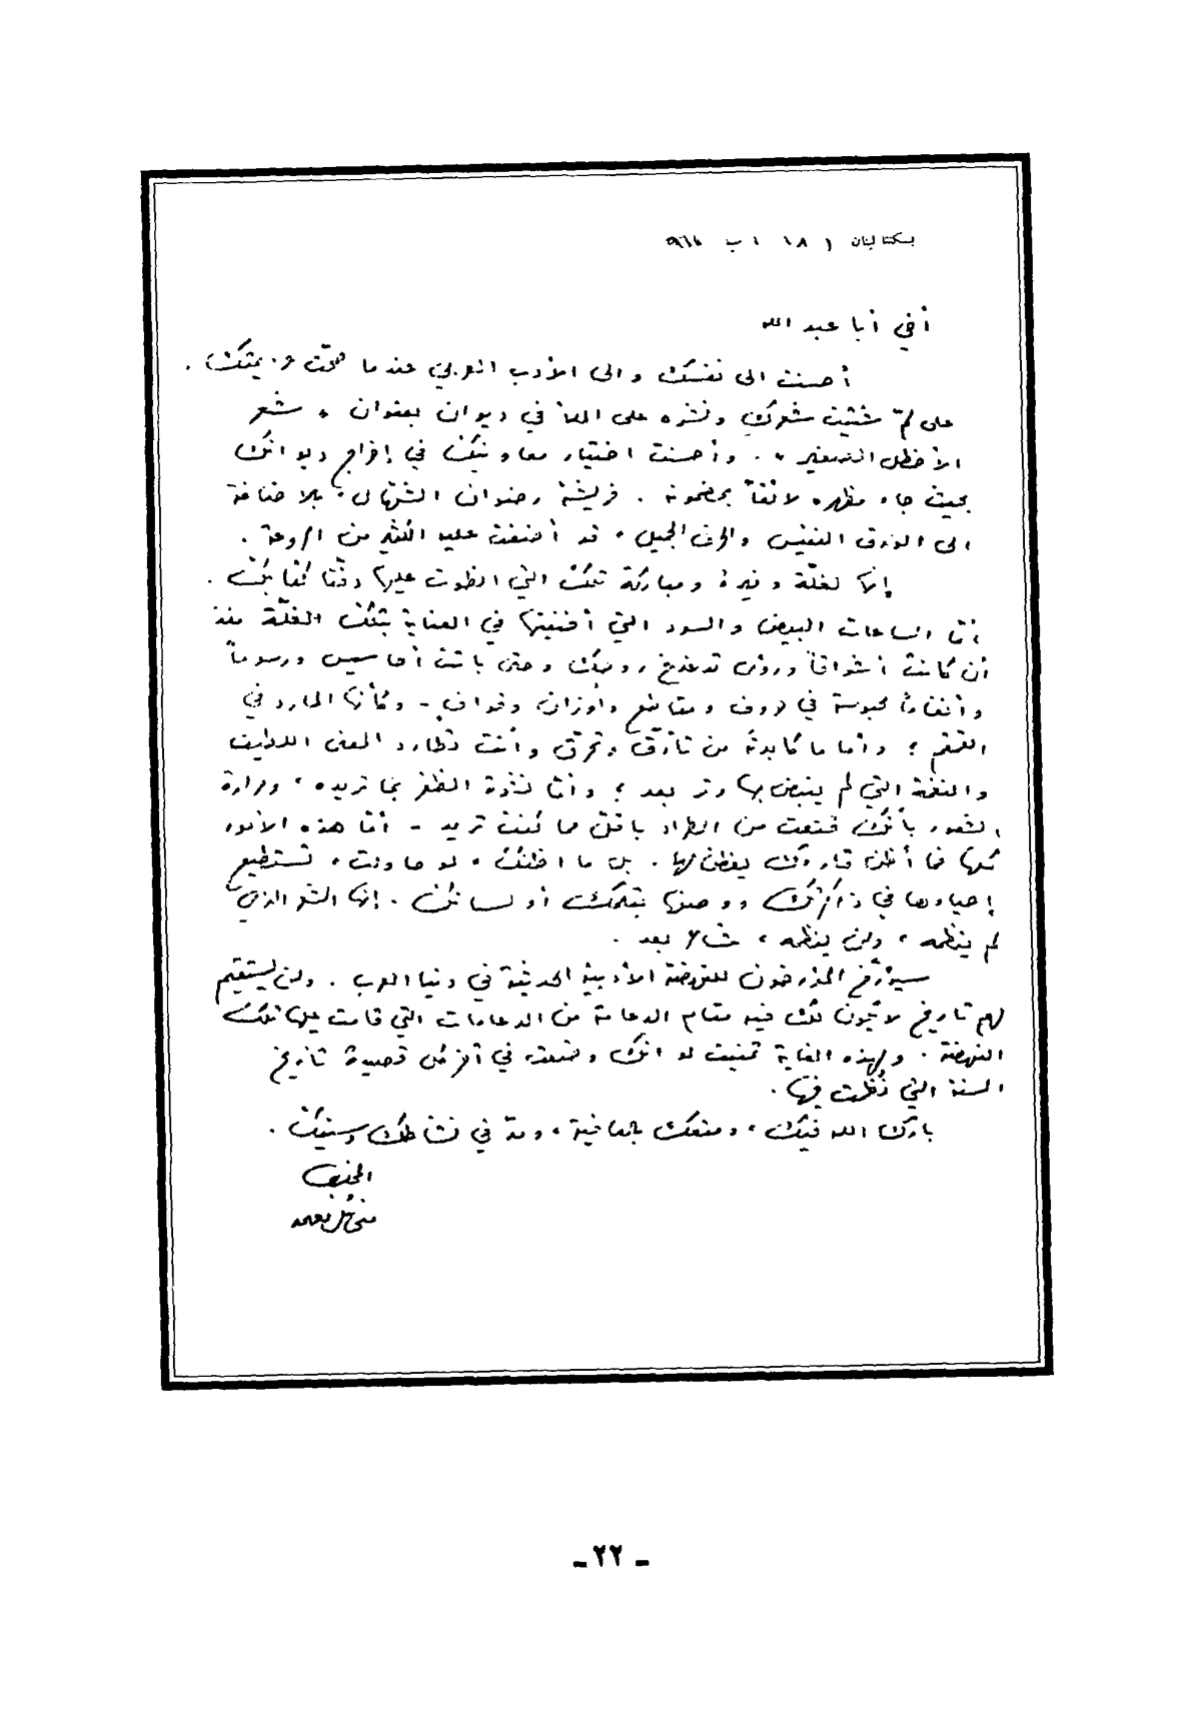 بسكنتا لبنان ١٨ آب ٩٦١
أخي أبا عبد الله
أحسنت الى نفسك والى الأدب العربي عندما صحّت عزيمتك
على لمّ شتيت شعرك ونشره على الملأ في ديوان بعنوان « شعر
الأخطل الصغير » . وأحسنت اختيار معاونيك في إخراج ديوانك
بحيث جاء مظهره لائقاً بمضمونه . فريشة رضوان الشهال ، بالاضافة
الى الورق النفيس والحرف الجميل ، قد أضفت عليه الكثير من الروعة .
إنها لغلّة وفيرة ومباركة تلك التي انطوت عليها دفّتا كتابك .
أمّا الساعات البيض والسود التي أفنيتها في العناية بتلك الغلّة منذ
أن كانت أشواقاً ورؤى تدغدغ روحك وحتى باتت أحاسيس ورسوماً
وأنغاماً محبوسة في حروف ومقاطع وأوزان وقوافٍ - وكأنها المارد في
القمقم ؛ وأما ما كابدته من تأرّق وتحرّق وأنت تطارد المعنى اللطيف
والنغمة التي لم ينبض بها وتر بعد ؛ وأمّا نشوة الظفر بما تريده ، ومرارة
الشعور بأنك قنعت من الطراد بأقلّ مما كنت تريد - أمّا هذه الأمور
كلها فما أظن قارئك يفطن لها . بل ما اظنك ، لو حاولت ، تستطيع
إحياءها في ذاكرتك ووصفها بقلمك أو لسانك . إنها الشعر الذي
لم ينظمه ، ولن ينظمه ، شاعر بعد .
سيؤرّخ المؤرخون للنهضة الأدبية الحديثة في دنيا العرب . ولن يستقيم
لهم تاريخ لا يكون لك فيه مقام الدعامة من الدعامات التي قامت عليها تلك
النهضة . ولهذه الغاية تمنيت لو انك وضعت في آخر كل قصيدة تاريخ
السنة التي نُظمت فيها .
بارك الله فيك ، ومتعك بالعافية ، ومدّ في نشاطك وسنيك .
المخلص
ميخائيل نعيمه
- ٢٢ -